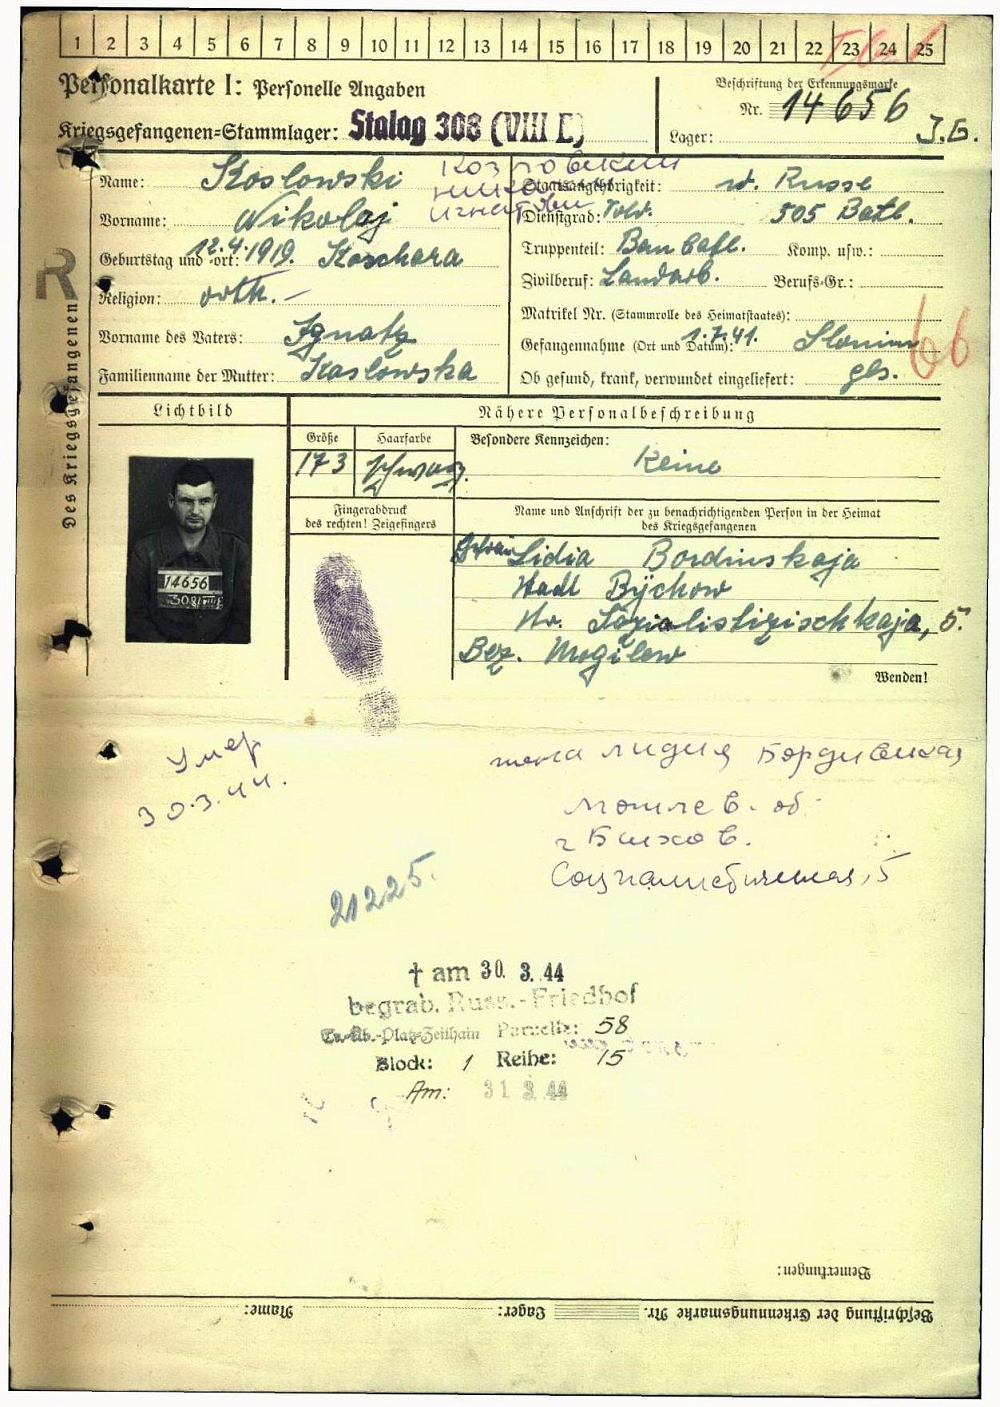 1 2 3 4 5 6 7 8 9 10 11 12 13 14 15 16 17 18 19 20 21 22 23 24 25
Personalkarte I: Personelle Angaben
Beschriftung der Erkennungsmarke
Nr. 14656
Kriegsgefangenen=Stammlager: Stalag 308 (VIII E)
Lager: J.G.
Козловский
николай
игнатови
Des Kriegsgefangenen
R
Name: Koslowski
Staatsangehörigkeit: w. Russe
Vorname: Nikolaj
Dienstgrad: Sold. 505 Batl.
Geburtstag und =ort: 12.4.1919. Koschara
Truppenteil: Bau batl. Komp. usw.:
Zivilberuf: Landarb. Berufs=Gr.:
Religion: orth. –
Matrikel Nr. (Stammrolle des Heimatstaates):
Vorname des Vaters: Ignatz
Gefangennahme (Ort und Datum): 1.7.41. Slonim
66
Familienname der Mutter: Koslowska
Ob gesund, krank, verwundet eingeliefert: ges.
Lichtbild
Nähere Personalbeschreibung
Größe Haarfarbe Besondere Kennzeichen:
173 schwarz. Keine
Fingerabdruck
des rechten! Zeigefingers
Name und Anschrift der zu benachrichtigenden Person in der Heimat
des Kriegsgefangenen
14656
308/VIII E
Lidia Bordinskaja
Stadt Bychow
Str. Sozialistizischkaja, 5.
Bez. Mogilew
Wenden!
Умер
30.3.44.
жена лидия Бордивская
Могилев. об.
г Быхов.
Социалистическая, 5
21225.
† am 30. 3. 44
begrab. Russ.-Friedhof
Tr.-Üb.-Platz-Zeithain Parzelle: 58
Block: 1 Reihe: 15
Am: 31 3. 44
Bemerkungen:
Name: Lager: Beschriftung der Erkennungsmarke Nr.